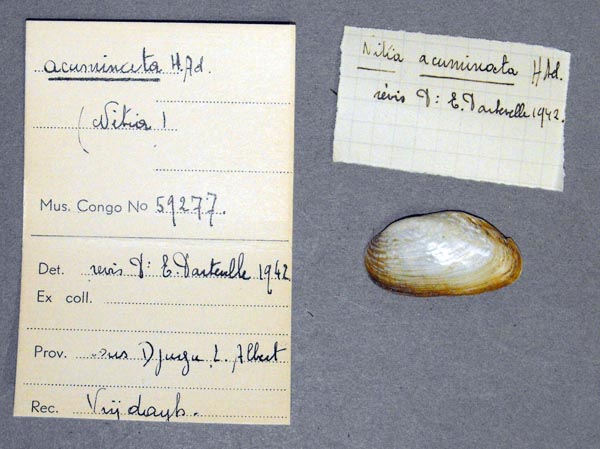 acuminata H. Ad.
(Nitia)
Mus. Congo No 59277.
Det. révis Dr: E. Dartevelle 1942
Ex coll.
Prov. Djugu, L. Albert
Rec. Vrijdagh.
Nitia acuminata H Ad.
révis Dr: E. Dartevelle 1942.